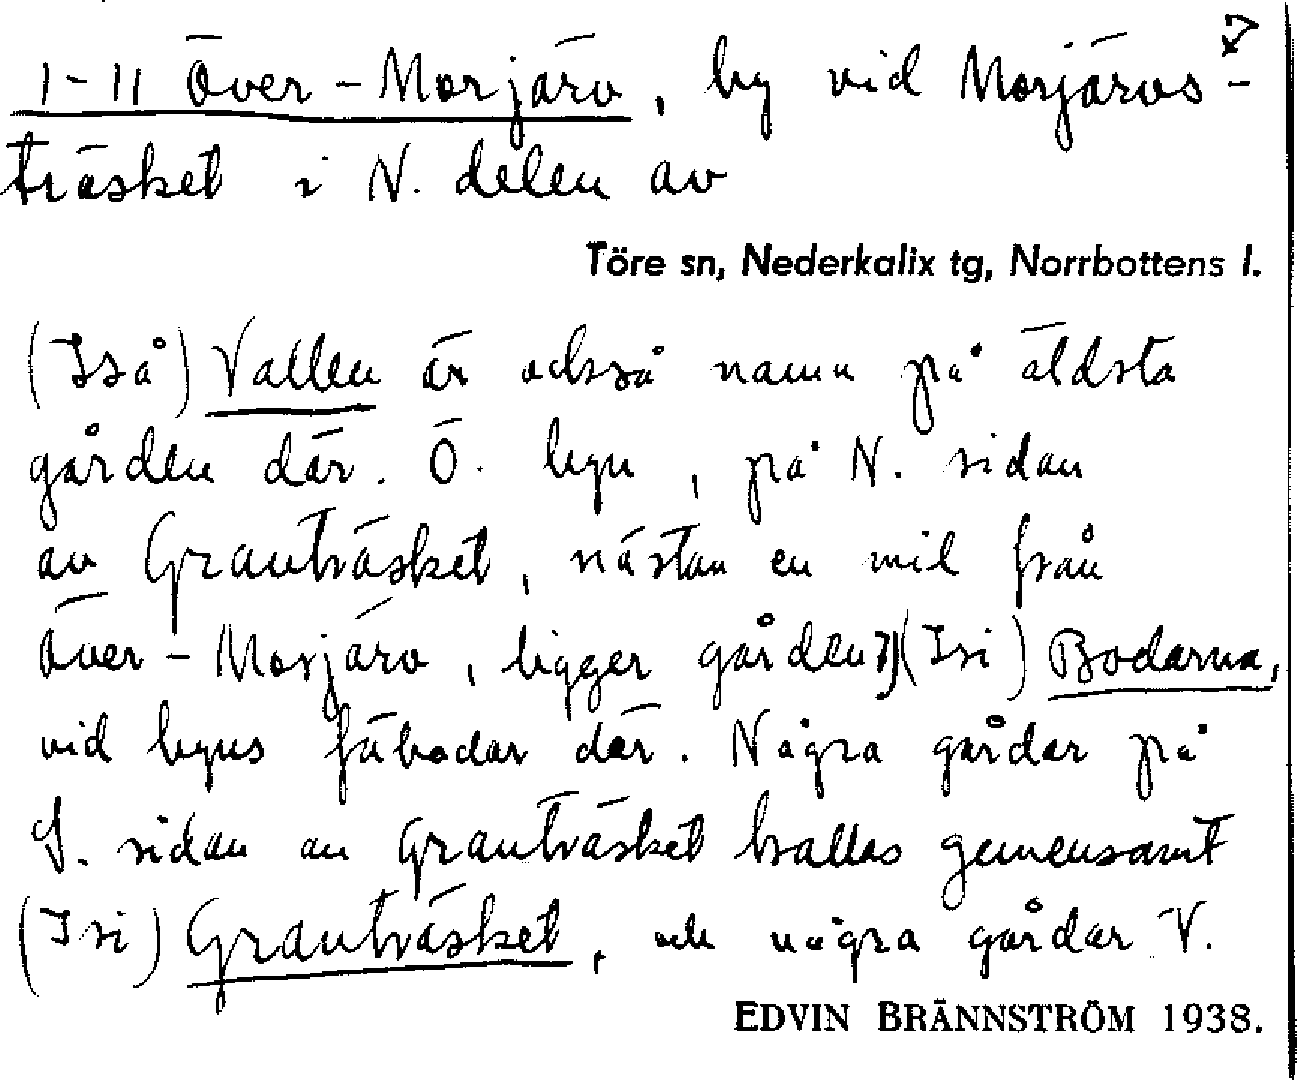 1-11 Över-Morjärv, by vid Morjärvs-
träsket i N. delen av
Töre sn, Nederkalix tg, Norrbottens l.
(Iså) Vallen är också namn på äldsta
gården där. Ö. byn, på N. sidan
av Granträsket, nästan en mil från
Över-Morjärv, ligger gården (Isi) Bodarna,
vid byns fäbodar där. Några gårdar på
S. sidan av Granträsket kallas gemensamt
(Isi) Granträsket, och några gårdar V.
EDVIN BRÄNNSTRÖM 1938.